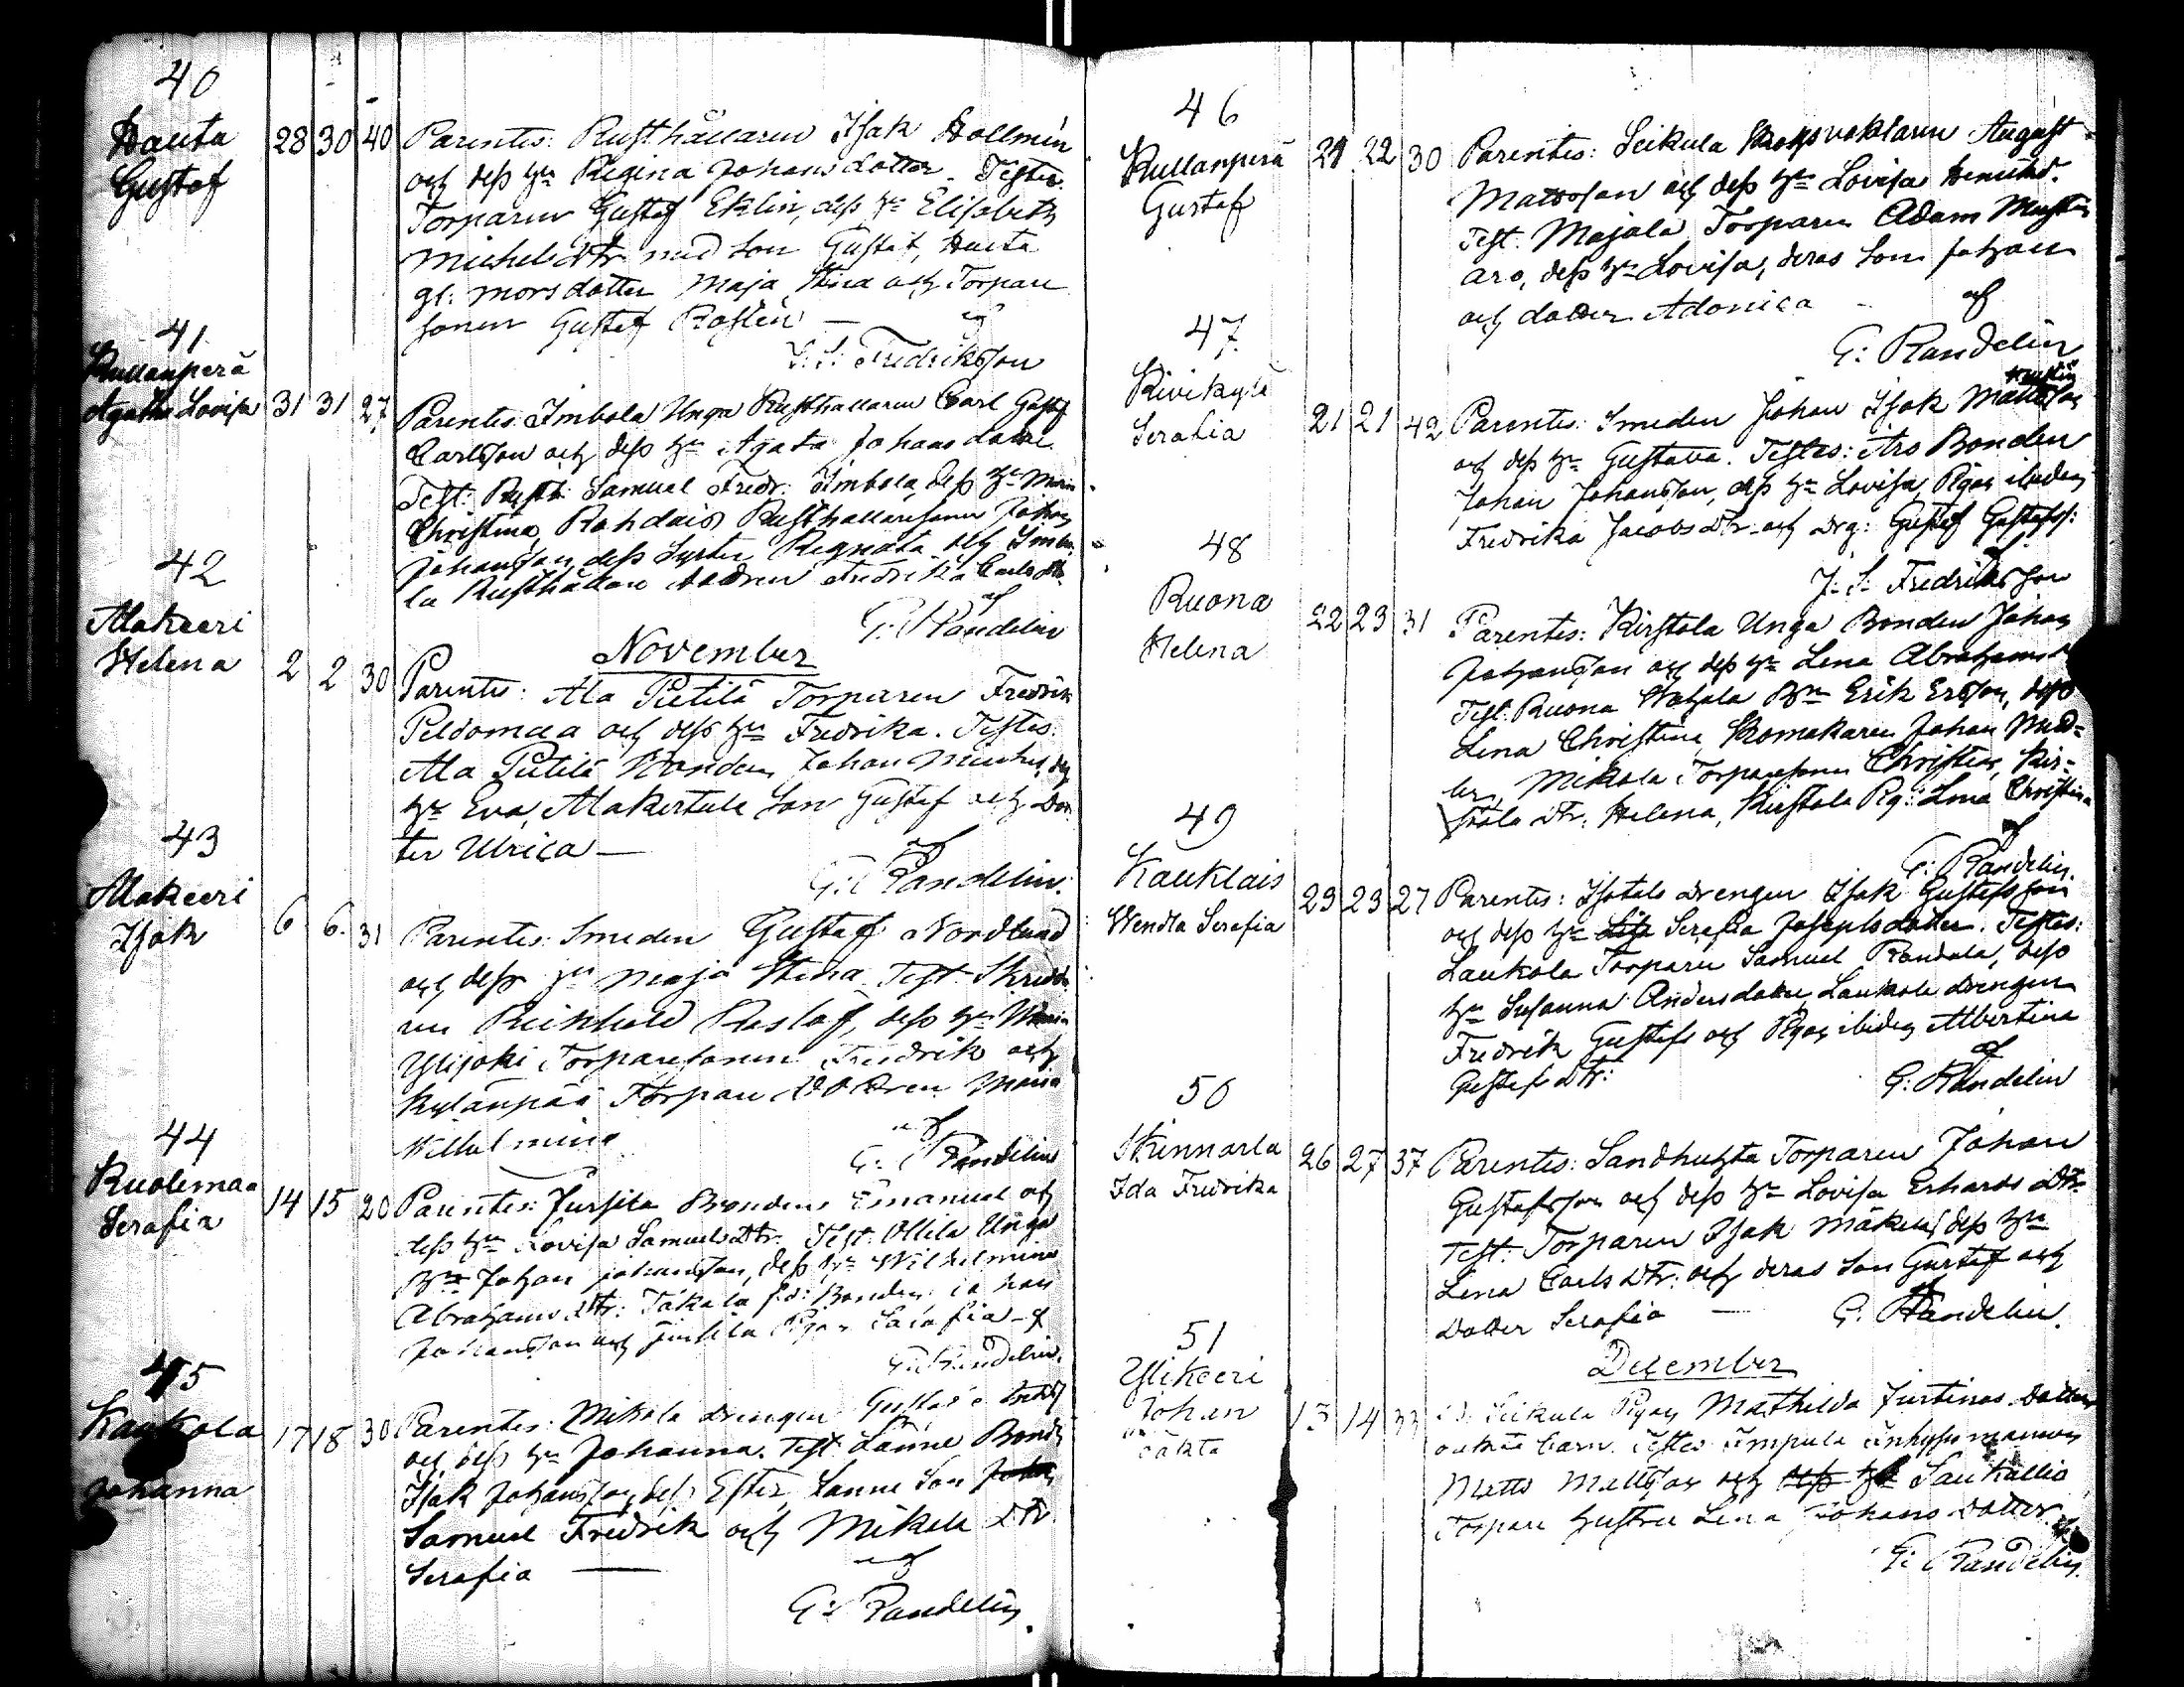 40
Hauta
Gustaf
28 30 40
Parentes: Rusthållaren Isak Hollmén
och dess hu Regina Johansdotter. Testes
Torparen Gustaf Eklin, dess hu Elisabeth
Michelsdtr med son Gustaf, Hauta
gl: morsdotter Maja Stina och Torpare
sonen Gustaf Roslén — af
J. S. Fredriksson
41
Kullanperä
Agatha Lovisa
31 31 27
Parentes: Imbola Unga Rusthållaren Carl Gustaf
Carlsson och dess hu Agata Johansdotter
Test: Rusth: Samuel Fredr: Imbola, dess hu Maria
Christina, Rohdais Rusthållaresonen Johan
Johansson, dess Syster Regnata och Imbo
la Rusthållare dottren Fredrika Carlsdtr
af
G: Randelin
November
42
Alakeeri
Helena
2 2 30
Parentes: Ala Pietilä Torparen Fredrik
Peldomaa och dess hu Fredrika. Testes:
Ala Pietilä Bonden Johan
hu Eva, Alakertula Son Gustaf och Dot
ter Ulrica —
af
G: Randelin
43
Alakeeri
Isak
6 6 31
Parentes: Smeden Gustaf Nordlund
och dess hu Maja Stina. Test: Skrädda
ren Reinhold Roslöf, dess hu Maria
Ylijoki Torparesonen Fredrik och
Kylänpää Torpare Dottren Maria
Wilhelmina
af
G: Randelin
44
Ruolemaa
Serafia
14 15 20
Parentes: Jursila Bonden Emanuel och
dess hu Lovisa Samuelsdtr. Test: Ollila Unga
Bn Johan Johansson, dess hu Wilhelmina
Abrahamsdtr: Takala Bonden Johan
Johansson och Jursila Pigan Serafia — af
G: Randelin
45
Kaukola
Johanna
17 18 30
Parentes: Mikola drengen Gustaf
och dess hu Johanna. Test: Länne Bonden
Isak Johansson, dess Ester, Länne Son
Samuel Fredrik och Mikola Dtr
Serafia —
af
G: Randelin
46
Kullanperä
Gustaf
21 22 30
Parentes: Seikula Skogsvaktaren August
Mattsson och dess hu Lovisa
Test: Majala Torparen Adam Musta
aro, dess hu Lovisa, deras Son Johan
och dotter Adonica — af
G: Randelin
47
Kivikylä
Serafia
21 21 42
Parentes: Smeden Johan Isak Mattsson
och dess hu Gustava. Testes: Aro Bonden
Johan Johansson, dess hu Lovisa, Pigan ibidem
Fredrika Jacobsdtr och Drg: Gustaf Gustafss:
af
J: S: Fredriksson
48
Ruona
Helena
22 23 31
Parentes: Kirstola Unga Bonden Johan
Johansson och dess hu Lena Abrahamsd
Test. Ruona Wahala Bn Erik Ersson, dess
Lena Christina, Skomakaren Johan Mud=
ler, Mikola Torparesonen Christian, Kir=
stola Dtr: Helena, Kirstola Pig: Lena Christina
af
G: Randelin
49
Kauklais
Wendla Serafia
23 23 27
Parentes: Isotalo Drengen Isak Gustafsson
och dess hu Serafia Josephsdotter. Testes:
Laukola Torparen Samuel Randala, dess
hu Susanna Andersdotter, Laukola drengen
Fredrik Gustafs och Pigan ibidem Albertina
Gustafsdtr:
af
G: Randelin
50
Skinnarla
Ida Fredrika
26 27 37
Parentes: Sandhuhta Torparen Johan
Gustafsson och dess hu Lovisa Erhardsdtr.
Test: Torparen Isak Mäkelä, dess hu
Lena Carlsdtr: och deras Son Gustaf och
Dotter Serafia — af
G. Randelin.
December
51
Ylikeeri
Johan
oäkta
13 14 33
Seikula Pigan Mathilda Justinas Dotter
oäkta barn. Testes Impula inhysesmannen
Matts Mattsson och Saukallio
Torpare hustru Lena Johansdotter
af
G: Randelin.